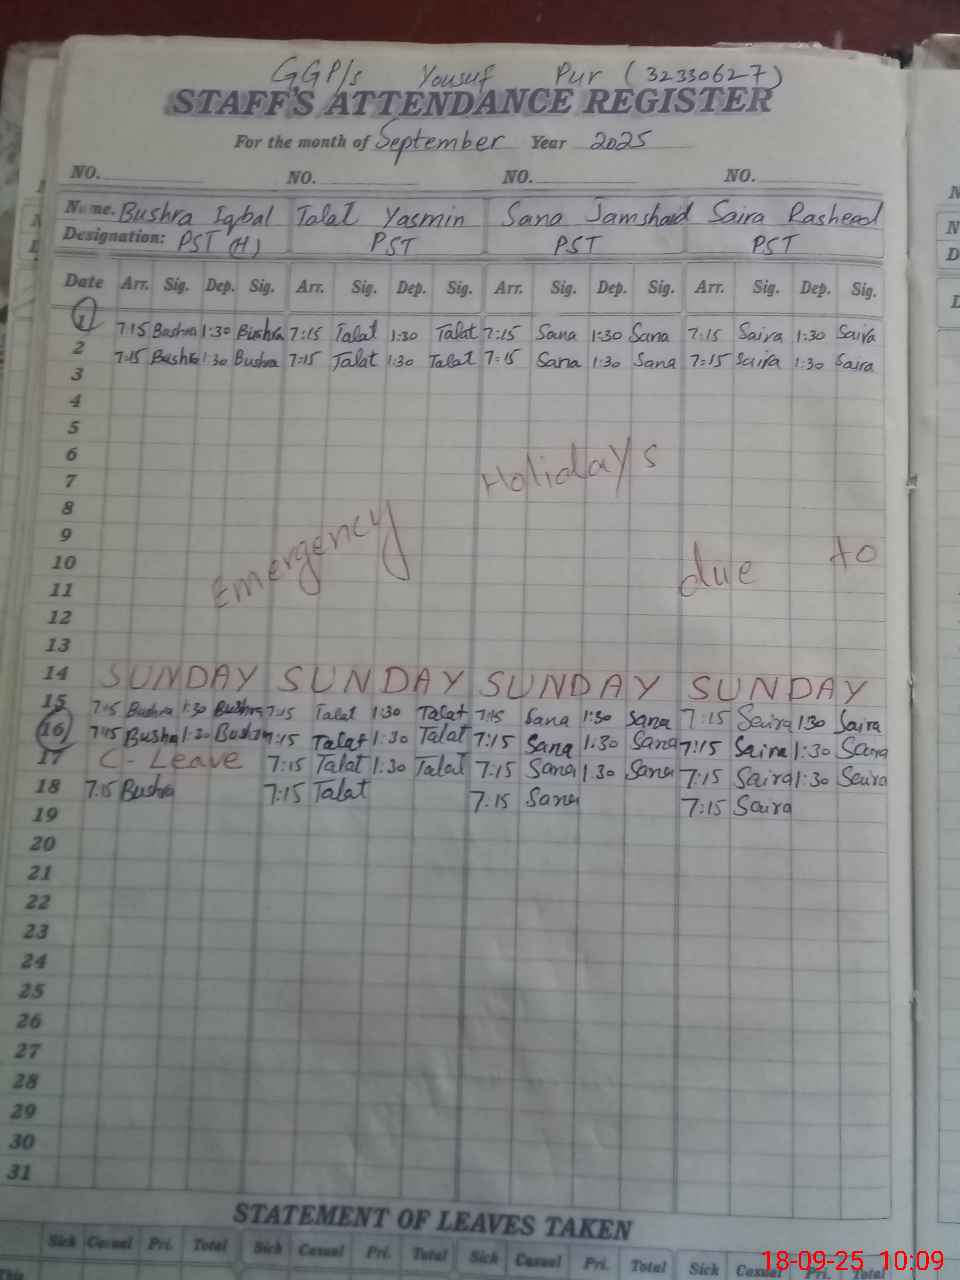 GGP/s Yousuf Pur (32330627)
STAFF'S ATTENDANCE REGISTER
For the month of September Year 2025
NO. NO. NO. NO.
Name. Bushra Iqbal Talat Yasmin Sana Jamshaid Saira Rasheed
Designation: PST (H) PST PST PST
Date Arr. Sig. Dep. Sig. Arr. Sig. Dep. Sig. Arr. Sig. Dep. Sig. Arr. Sig. Dep. Sig.
1 7:15 Bushra 1:30 Bushra 7:15 Talat 1:30 Talat 7:15 Sana 1:30 Sana 7:15 Saira 1:30 Saira
2 7:15 Bushra 1:30 Bushra 7:15 Talat 1:30 Talat 7:15 Sana 1:30 Sana 7:15 Saira 1:30 Saira
3
4
5
6
7
8
9
10
11
12
13
Emergency Holidays due to
14 SUNDAY SUNDAY SUNDAY SUNDAY
15 7:15 Bushra 1:30 Bushra 7:15 Talat 1:30 Talat 7:15 Sana 1:30 Sana 7:15 Saira 1:30 Saira
16 7:15 Bushra 1:30 Bushra 7:15 Talat 1:30 Talat 7:15 Sana 1:30 Sana 7:15 Saira 1:30 Saira
17 C-Leave 7:15 Talat 1:30 Talat 7:15 Sana 1:30 Sana 7:15 Saira 1:30 Saira
18 7:15 Bushra 7:15 Talat 7:15 Sana 7:15 Saira
19
20
21
22
23
24
25
26
27
28
29
30
31
STATEMENT OF LEAVES TAKEN
Sick Casual Pri. Total Sick Casual Pri. Total Sick Casual Pri. Total Sick Casual Pri. Total
18-09-25 10:09